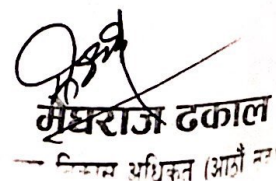 मेघराज ढकाल
विकास अधिकृत (आठौं